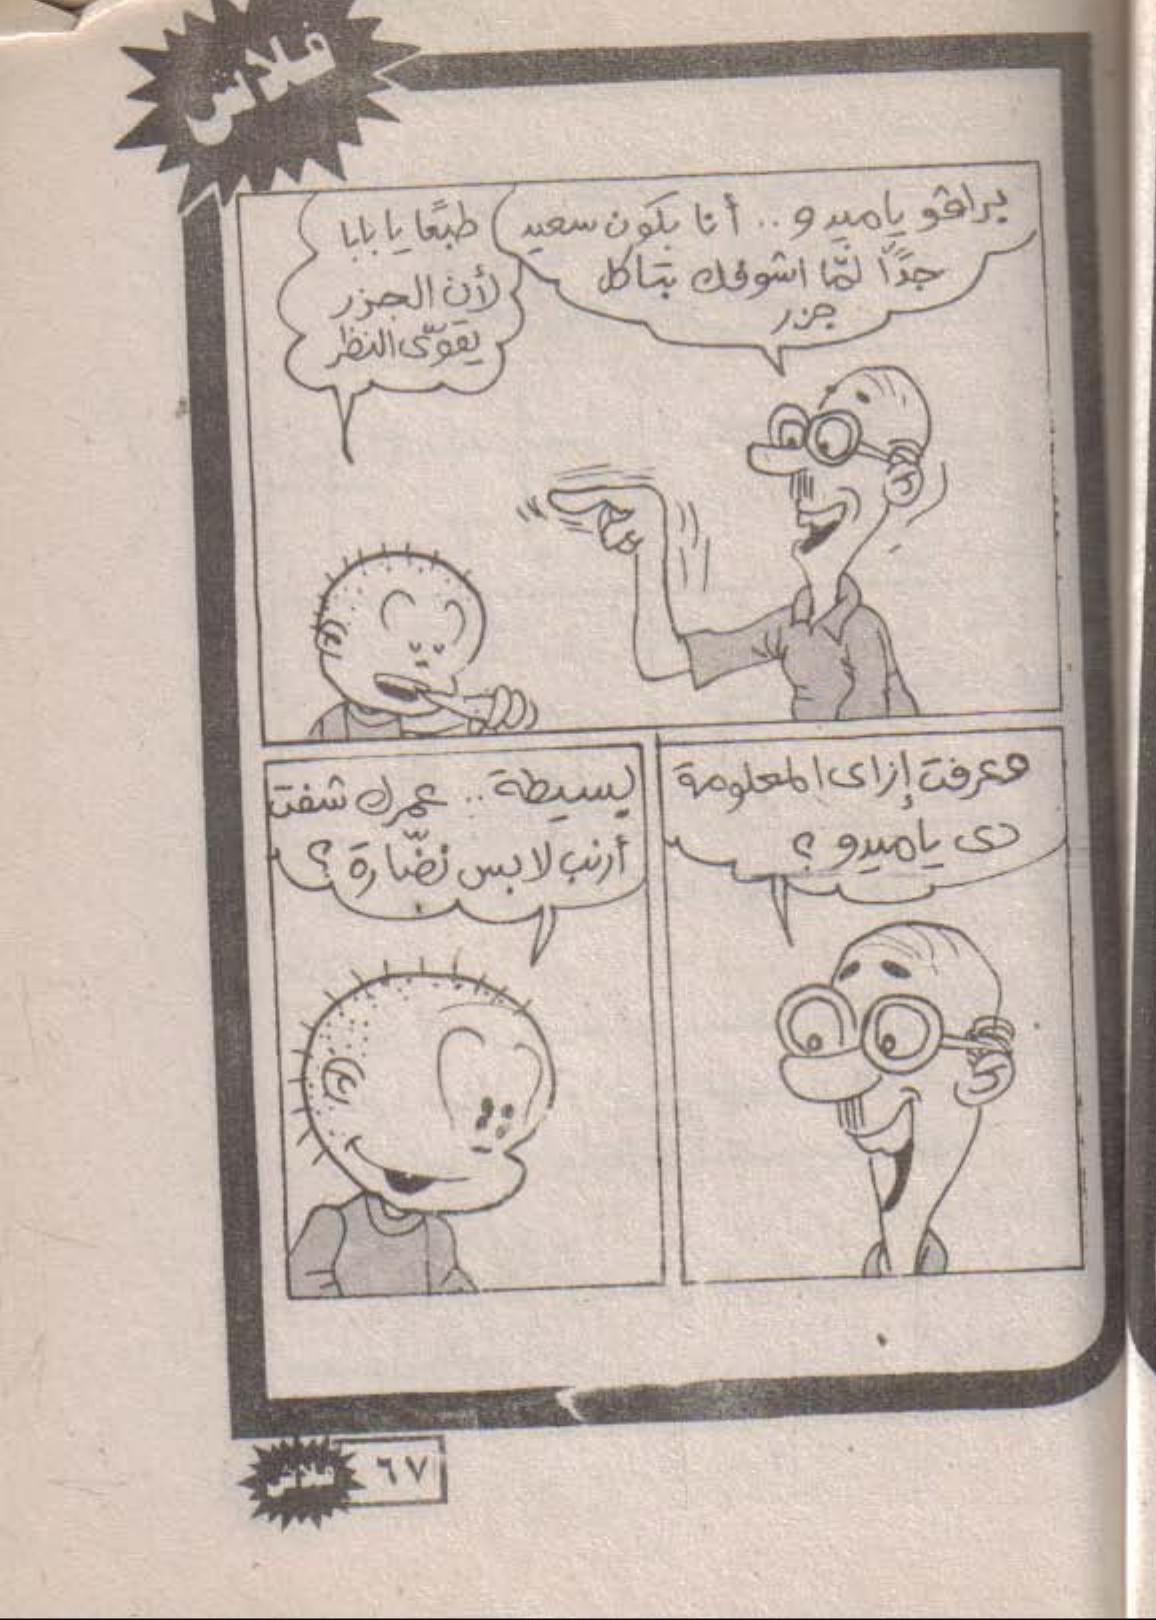 فلاش
براڤو ياميدو.. أنا بكون سعيد
جدًّا لمَّا اشوفك بتاكل
جزر
طبعًا يا بابا
لأن الجزر
يقوّى النظر
وعرفت إزاى المعلومة
دى ياميدو؟
بسيطة.. عمرك شفت
أرنب لابس نضّارة؟
٦٧
فلاش